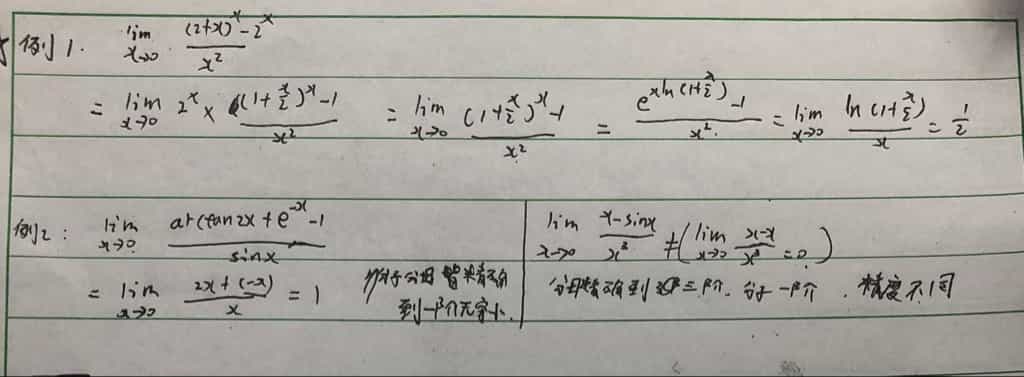 例1. lim x→0 ((2+x)^x - 2^x)/x^2
= lim x→0 2^x × ((1+x/2)^x - 1)/x^2 = lim x→0 ((1+x/2)^x - 1)/x^2 = (e^{x ln(1+x/2)} - 1)/x^2 = lim x→0 ln(1+x/2)/x = 1/2
例2: lim x→0 (arctan2x + e^{-x} - 1)/sinx
= lim x→0 (2x + (-x))/x = 1
分子分母皆精确
到一阶无穷小.
lim x→0 (x - sinx)/x^3 ≠ (lim x→0 (x-x)/x^3 = 0)
分母精确到三阶. 分子一阶. 精度不同